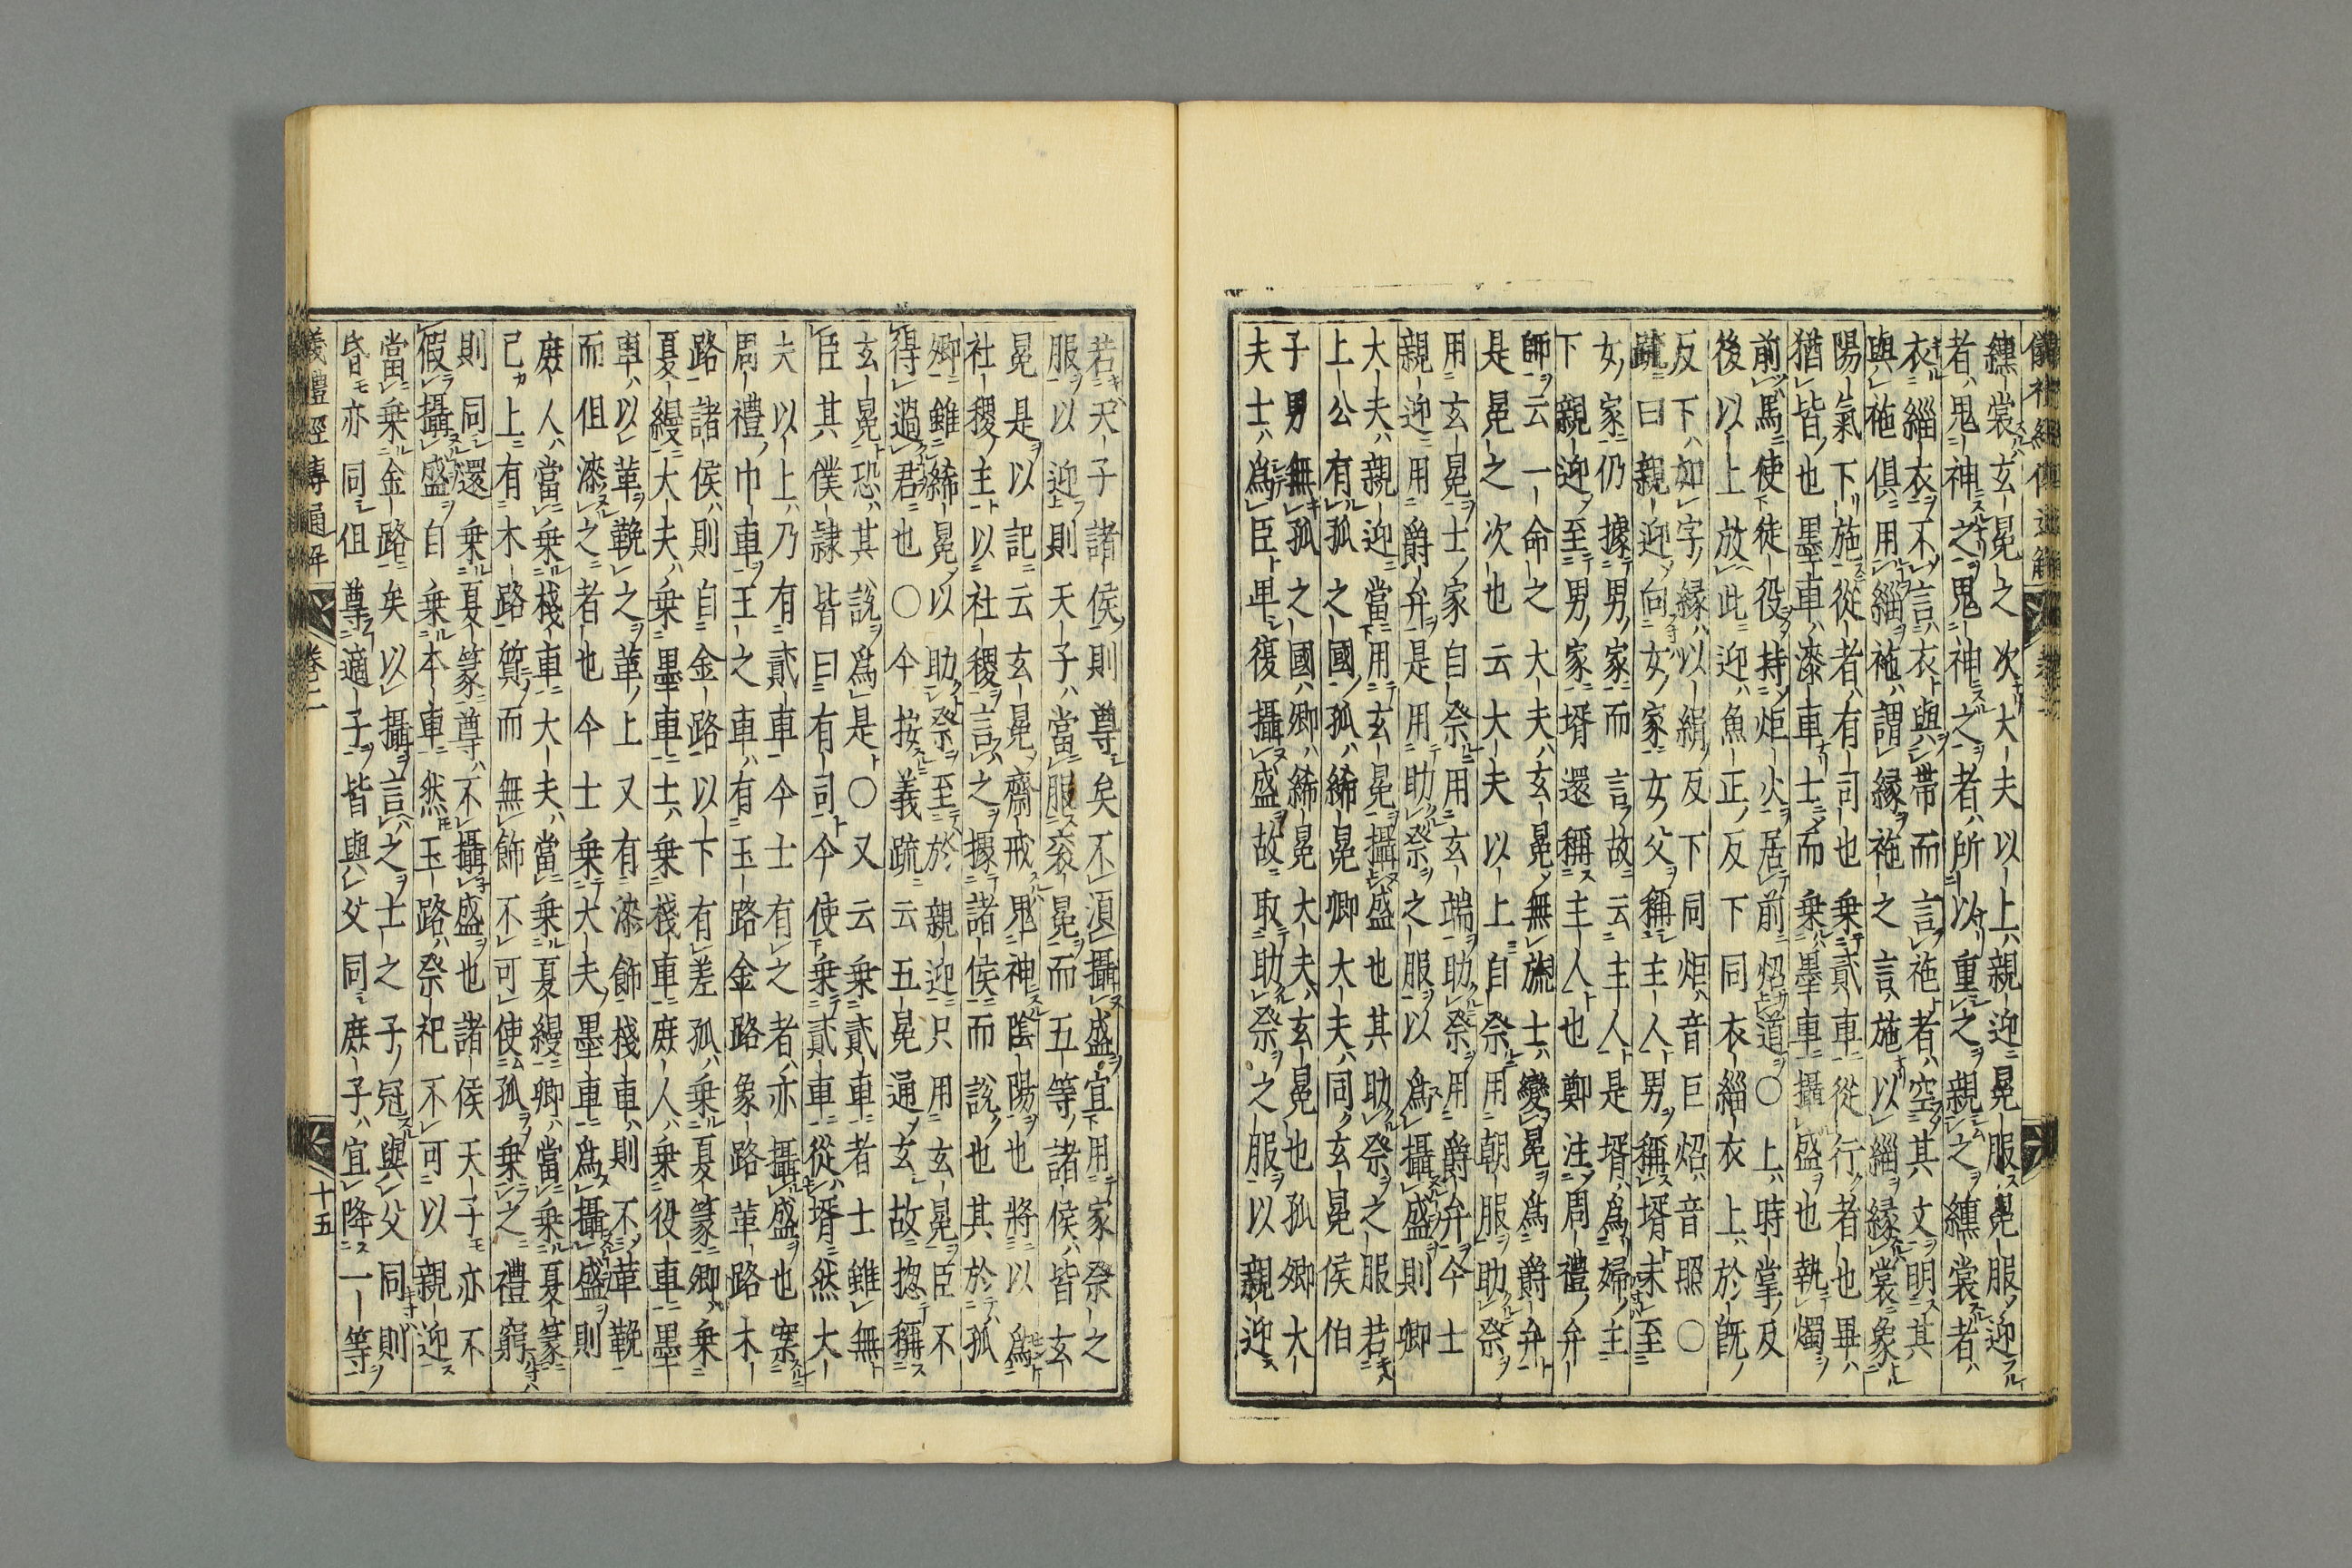 纁裳玄冕之次大夫以上親迎冕服冕服迎
者鬼神之鬼神之者所以重之親之纁裳者
衣緇衣不言衣與帶而言袘者空其文明其
與袘俱用緇袘謂緣袘之言施以緇緣裳象
陽氣下施從者有司也乗貳車從行者也畢
猶皆也墨車漆車士而乗墨車攝盛也執燭
前馬使徒役持炬火居前炤道〇上時掌反
後以上放此迎魚正反下同衣緇衣上於旣
反下如字緣以絹反下同炬音巨炤音照〇
疏曰親迎向女家女父稱主人男稱壻未至
女家仍據男家而言故云主人是壻爲婦主
下親迎至男家壻還稱主人也鄭注周禮弁
師云一命之大夫玄冕無旒士變冕爲爵弁
是冕之次也云大夫以上自祭用朝服助祭
用玄冕士家自祭用玄端助祭用爵弁今士
親迎用爵弁是用助祭之服以爲攝盛則卿
大夫親迎當用玄冕攝盛也其助祭之服若
上公有孤之國孤絺冕卿大夫同玄冕侯伯
子男無孤之國卿絺冕大夫玄冕也孤卿大
夫士爲臣卑復攝盛故取助祭之服以親迎
若天子諸侯則尊矣不須攝盛宜用家祭之
服以迎則天子當服衮冕而五等諸侯皆玄
冕是以記云玄冕齋戒鬼神陰陽也將以爲
社稷主以社稷言之據諸侯而説也其於孤
卿雖絺冕以助祭至於親迎只用玄冕臣不
得過君也〇今按義疏云五冕通玄故揔稱
玄冕恐其説爲是〇又云乗貳車者士雖無
臣其僕隷皆曰有司今使乗貳車從壻然大
夫以上乃有貳車今士有之者亦攝盛也案
周禮巾車王之車有玉路金路象路革路木
路諸侯則自金路以下有差孤乗夏篆卿乗
夏縵大夫乗墨車士乗棧車庶人乗役車墨
車以革鞔之革上又有漆飾棧車則不革鞔
而但漆之者也今士乗大夫墨車爲攝盛則
庶人當乗棧車大夫當乗夏縵卿當乗夏篆
已上有木路質而無飾不可使孤乗之禮窮
則同還乗夏篆尊不攝盛也諸侯天子亦不
假攝盛自乗本車然玉路祭祀不可以親迎
當乗金路矣以攝言之士之子冠與父同則
昏亦同但尊適子皆與父同庶子宜降一等
義禮經傳通解 卷二 十五